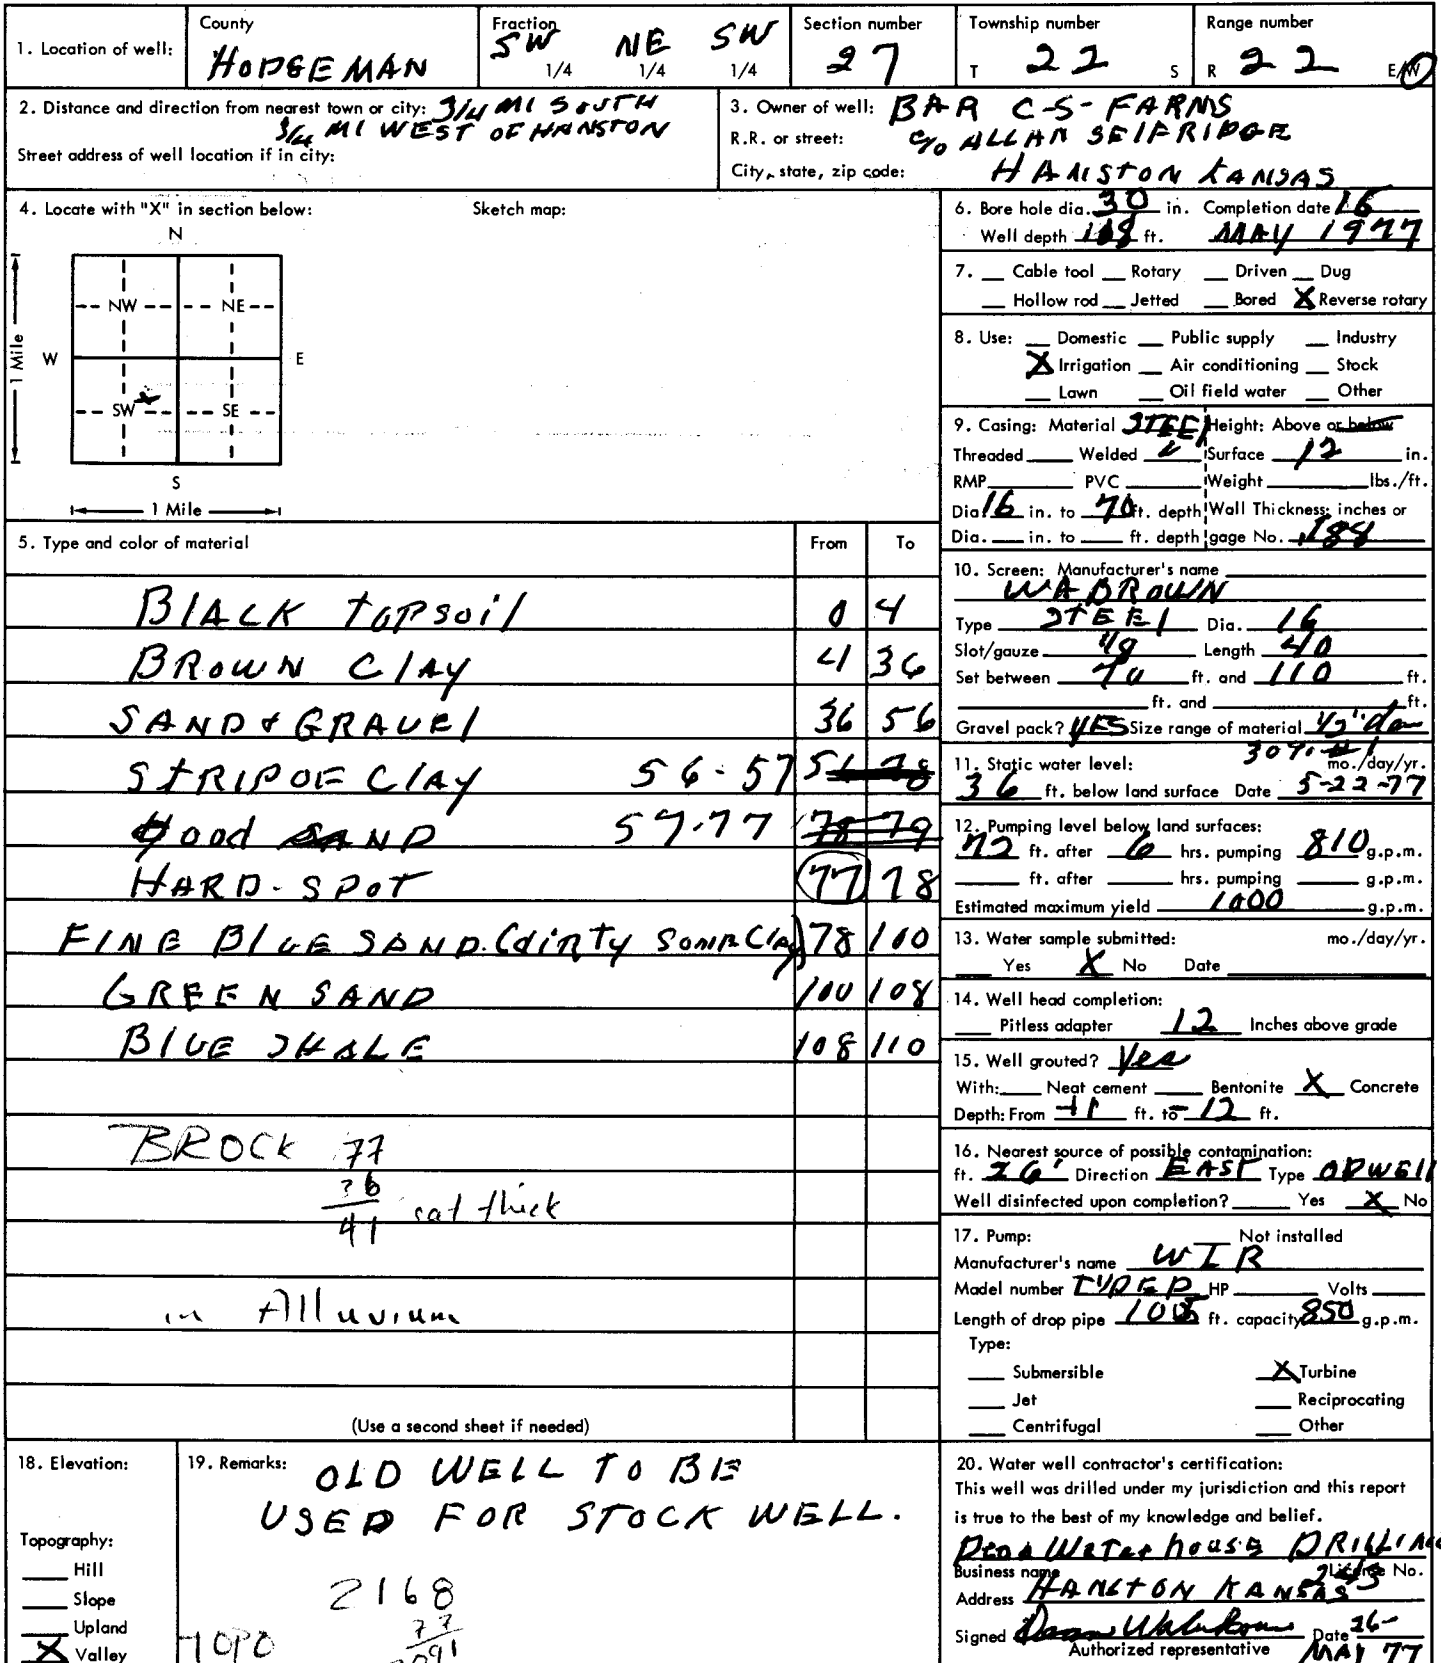 1. Location of well: County HODGEMAN Fraction SW 1/4 NE 1/4 SW 1/4 Section number 27 Township number T 22 S Range number R 22 E/W
2. Distance and direction from nearest town or city: 3/4 MI SOUTH
3/4 MI WEST OF HANSTON
Street address of well location if in city:
3. Owner of well: BAR C-S-FARMS
R.R. or street: c/o ALLAN SEIFRIDGE
City, state, zip code: HANSTON KANSAS
4. Locate with "X" in section below: Sketch map:
N
NW NE
W E
1 Mile
SW X SE
S
1 Mile
5. Type and color of material From To
BLACK TOPSOIL 0 4
BROWN CLAY 4 36
SAND & GRAVEL 36 56
STRIP OF CLAY 56-57
Good SAND 57-77
HARD-SPOT 77 78
FINE BLUE SAND (dirty some Clay) 78 100
GREEN SAND 100 108
BLUE SHALE 108 110
BROCK 77
36
41 sat thick
in Alluvium
(Use a second sheet if needed)
6. Bore hole dia. 30 in. Completion date 16
Well depth ft. MAY 1977
7. Cable tool Rotary Driven Dug
Hollow rod Jetted Bored X Reverse rotary
8. Use: Domestic Public supply Industry
X Irrigation Air conditioning Stock
Lawn Oil field water Other
9. Casing: Material STEEL Height: Above or below
Threaded Welded Surface 12 in.
RMP PVC Weight lbs./ft.
Dia. 16 in. to 70 ft. depth Wall Thickness: inches or
Dia. in. to ft. depth gage No. .188
10. Screen: Manufacturer's name
WA BROWN
Type STEEL Dia. 16
Slot/gauze 1/8 Length 40
Set between 70 ft. and 110 ft.
ft. and ft.
Gravel pack? YES Size range of material 1/2"
11. Static water level: mo./day/yr.
36 ft. below land surface Date 5-22-77
12. Pumping level below land surfaces:
72 ft. after 6 hrs. pumping 810 g.p.m.
ft. after hrs. pumping g.p.m.
Estimated maximum yield 1000 g.p.m.
13. Water sample submitted: mo./day/yr.
Yes X No Date
14. Well head completion:
Pitless adapter 12 Inches above grade
15. Well grouted? Yes
With: Neat cement Bentonite X Concrete
Depth: From +1 ft. to -12 ft.
16. Nearest source of possible contamination:
ft. 26' Direction EAST Type
Well disinfected upon completion? Yes X No
17. Pump: Not installed
Manufacturer's name
Model number HP Volts
Length of drop pipe ft. capacity 850 g.p.m.
Type:
Submersible X Turbine
Jet Reciprocating
Centrifugal Other
18. Elevation:
Topography:
Hill
Slope
Upland
X Valley
19. Remarks: OLD WELL TO BE
USED FOR STOCK WELL.
2168
77
2091
TOPO
20. Water well contractor's certification:
This well was drilled under my jurisdiction and this report
is true to the best of my knowledge and belief.
Waterhouse DRILLING
Business name License No.
Address HANSTON KANSAS
Signed Date 26-
Authorized representative MAY 77